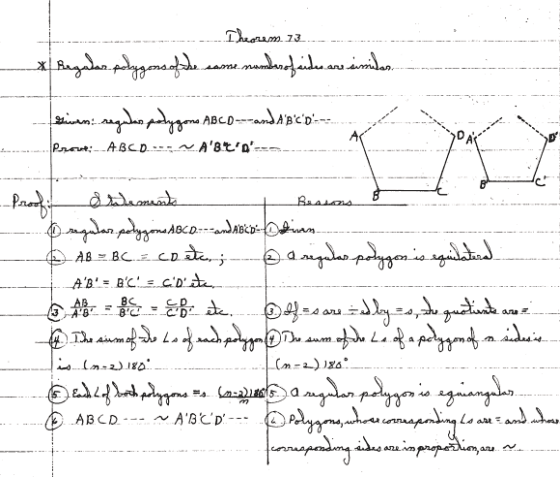 Theorem 73
* Regular polygons of the same number of sides are similar.
Given: regular polygons ABCD---and A'B'C'D'---
Prove: ABCD --- ~ A'B'C'D'----
A D A' D'
B C B' C'
Proof: Statements Reasons
① regular polygons ABCD---and A'B'C'D'- ① Given
② AB = BC = CD etc. ; ② A regular polygon is equilateral
A'B' = B'C' = C'D' etc.
③ AB/A'B' = BC/B'C' = CD/C'D' etc. ③ If =s are ÷ed by =s, the quotients are =
④ The sum of the ∠s of each polygon ④ The sum of the ∠s of a polygon of n sides is
is (n-2)180° (n-2)180°
⑤ Each ∠ of both polygons =s (n-2)180°/n ⑤ A regular polygon is equiangular
⑥ ABCD ---- ~ A'B'C'D'--- ⑥ Polygons, whose corresponding ∠s are = and whose
corresponding sides are in proportion, are ~